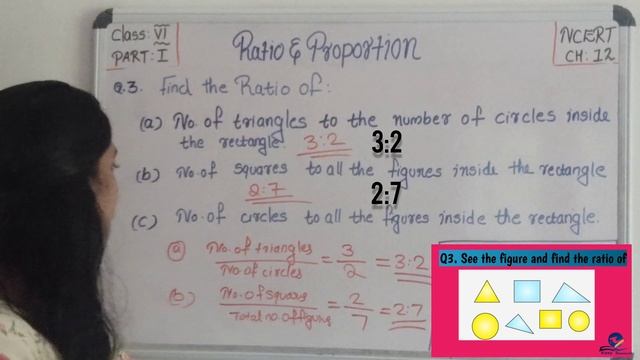 Class: VI
PART: I
Ratio & Proportion
NCERT
CH: 12
Q.3. Find the Ratio of:
(a) No. of triangles to the number of circles inside
the rectangle 3:2
3:2
(b) No. of squares to all the figures inside the rectangle
2:7
2:7
(c) No. of circles to all the figures inside the rectangle.
(a) No. of triangles / No of circles = 3/2 = 3:2
(b) No. of square / Total no. of figure = 2/7 = 2:7
Q3. See the figure and find the ratio of